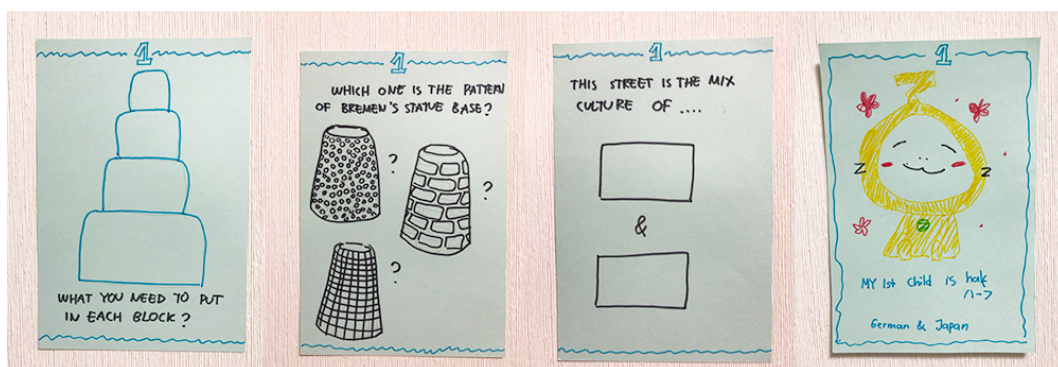 1
WHAT YOU NEED TO PUT
IN EACH BLOCK?
1
WHICH ONE IS THE PATTERN
OF BREMEN'S STATUE BASE?
?
?
?
1
THIS STREET IS THE MIX
CULTURE OF ....
&
1
Z
Z
MY 1st child is half
ハーフ
German & Japan